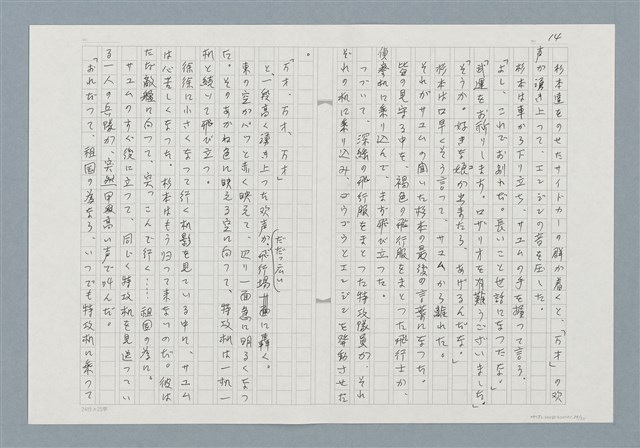 14
杉本達をのせたサイドカーの群が着くと、「万才」の吹
声が湧き上って、エンジンの音を圧した。
杉本は車から下り立ち、サユムの手を握って言う、
「よし、これでお別れだ。長いこと世話になったな。」
「武運をお祈りします。ロザリオを有難うございました。」
「そうか。好きな娘が出来たら、あげるんだな。」
杉本は口早くそう言って、サユムから離れた。
それがサユムの聞いた杉本の最後の言葉になった。
皆の見守る中を、褐色の飛行服をまとった飛行士が、
偵察機に乗り込んで、まず飛び立った。
つづいて、深緑の飛行服をまとった特攻隊員が、それ
ぞれの機に乗り込み、ゴウゴウとエンジンを発動させた
。
「万才、万才、万才」
と、一段高く湧き上った吹声が、だだっ広い飛行場に轟く。
東の空がパッと赤く映えて、辺り一面急に明るくなっ
た。そのあかね色に映える空に向って、特攻機は一機一
機と続いて飛び立つ。
徐徐に小さくなって行く機影を見ている中に、サユム
は心苦しくなった。杉本はもう帰って来ないのだ。彼は
ただ敵艦に向って、突っこんで行く……祖国の為に。
サユムのすぐ後に立って、同じく特攻機を見送ってい
る一人の兵隊が、突然甲高い声で叫んだ。
「おれだって、祖国の為なら、いつでも特攻機に乗って